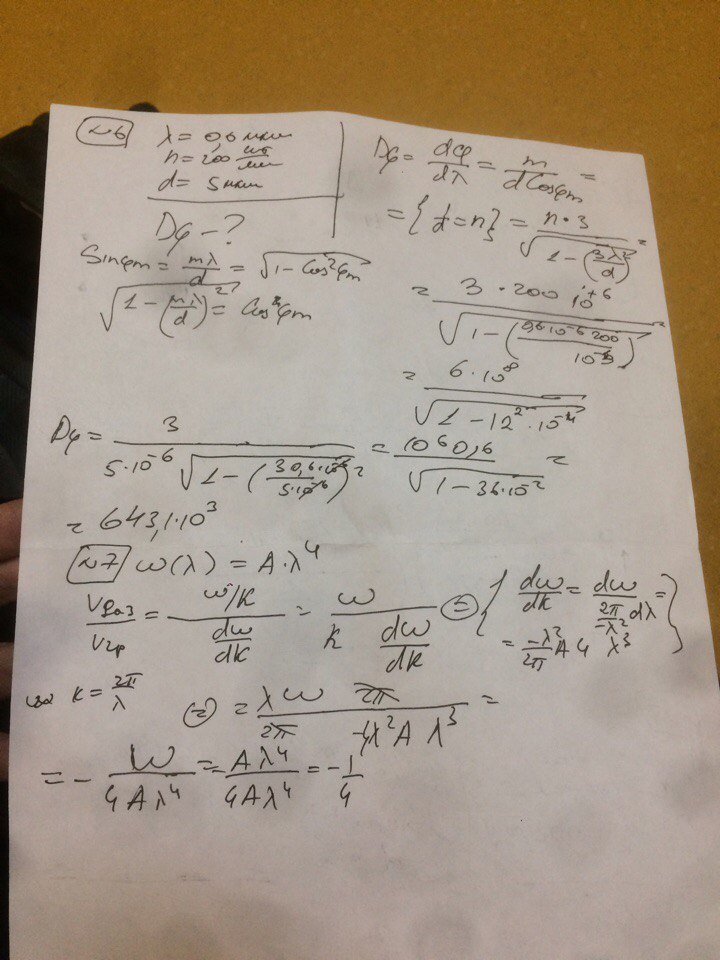 №6
λ = 0,6 мкм
n = 200 шт/мм
d = 5 мкм
Dφ - ?
Sinφm = mλ/d = √(1 - Cos²φm)
√(1 - (mλ/d)²) = Cosφm
Dφ = dφ/dλ = m/(dCosφm) =
= {d = n} = n·3/√(1 - (3λ/d)²) =
= 3·200·10⁺⁶/√(1 - (0,6·10⁻⁶·200/10⁻³)²) =
= 6·10⁸/√(1 - 12²·10⁻⁴)
Dφ = 3/(5·10⁻⁶ √(1 - (3 0,6·10⁻⁶/5·10⁻⁶)²)) = 10⁶0,6/√(1 - 36·10⁻²) =
= 643,1·10³
№7 ω(λ) = A·λ⁴
Vфаз/Vгр = (ω/k)/(dω/dk) = ω/(k dω/dk) = { dω/dk = dω/(2π/-λ² dλ) =
= -λ²/2π A 4 λ³ }
k = 2π/λ
= = λω 2π/(2π -4λ²A λ³) =
= - ω/4Aλ⁴ = - Aλ⁴/4Aλ⁴ = - 1/4